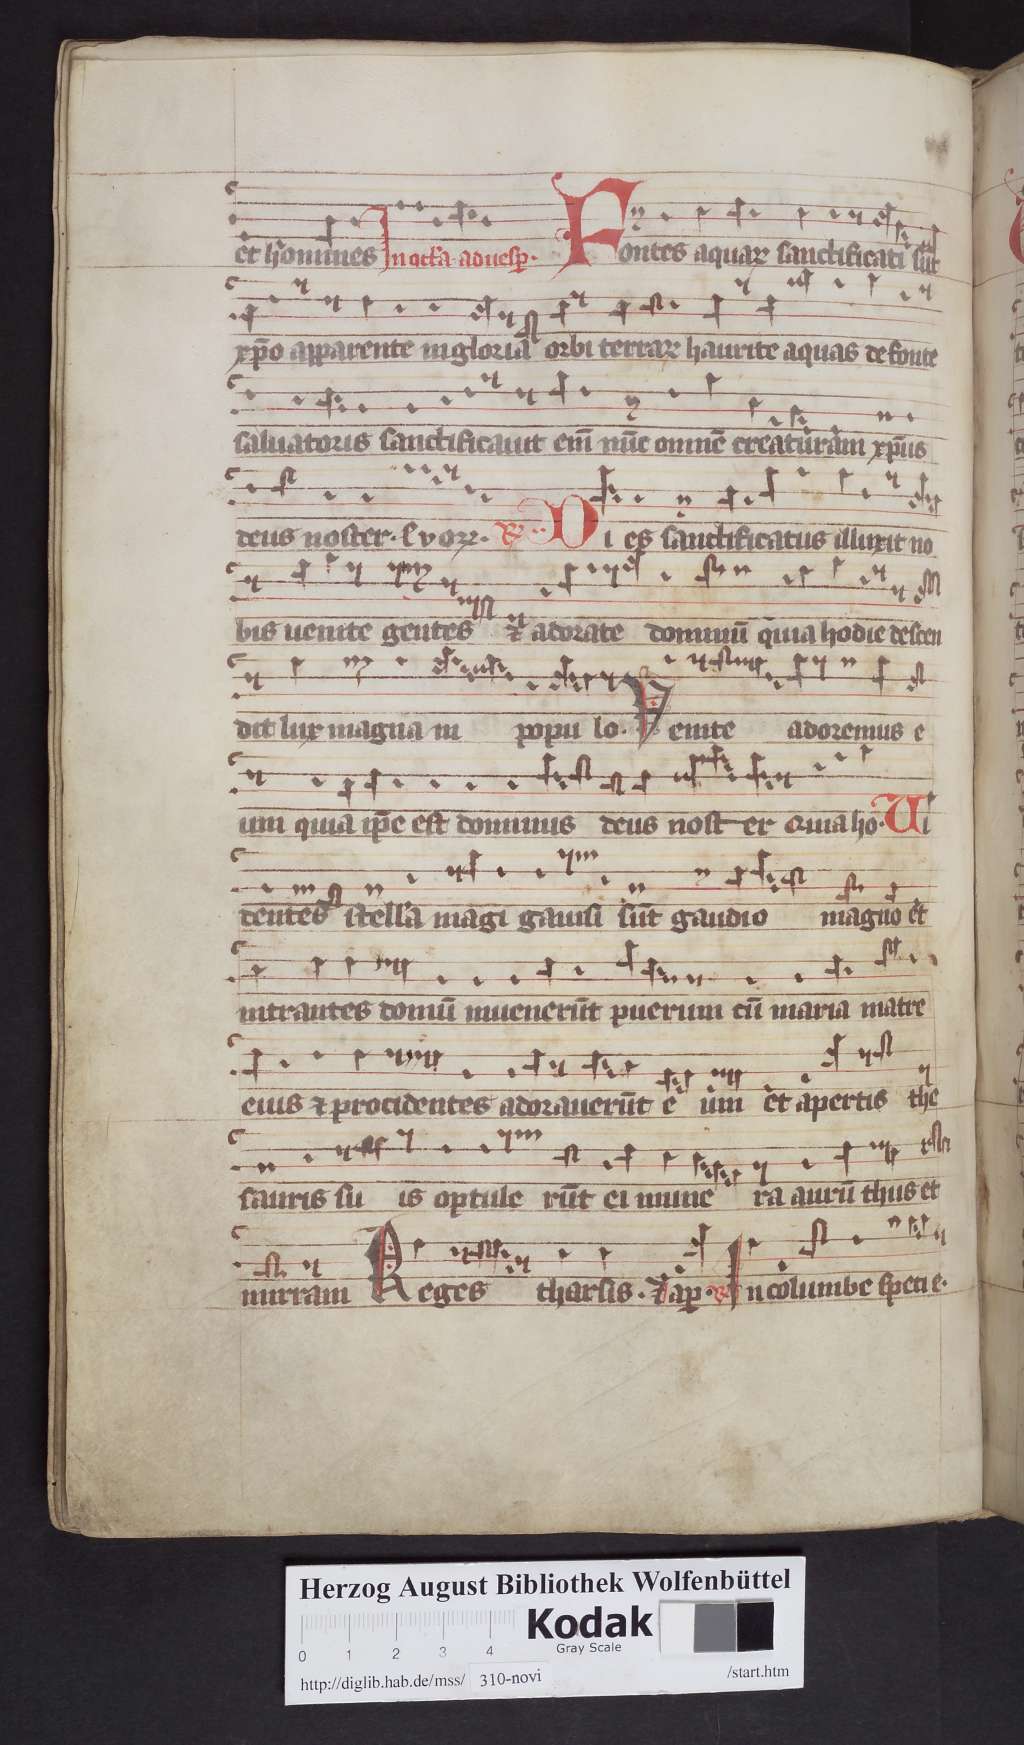 et homines In octa aduesp. Fontes aquaꝝ sanctificati sūt
xp̄o apparente in gloria orbi terraꝝ haurite aquas de fonte
saluatoris sanctificauit eni͞ nūc omnē creaturam xp̄us
deus noster. Evovꝝ. Di es sanctificatus illuxit no
bis uenite gentes ⁊ adorate dominū quia hodie descen
dit lux magna in popu lo. Venite adoremus e
um quia ip̄e est dominus deus nost er Quia ho. Vi
dentes stella magi gauisi sūt gaudio magno et
intrantes domū inuenerūt puerum cū maria matre
eius ⁊ procidentes adorauerūt e um et apertis the
sauris su is optule rūt ei mune ra aurū thus et
mirram Reges tharsis. ⁊ ap. In columbe speci e.
Herzog August Bibliothek Wolfenbüttel
0 1 2 3 4
Kodak
Gray Scale
http://diglib.hab.de/mss/ 310-novi /start.htm